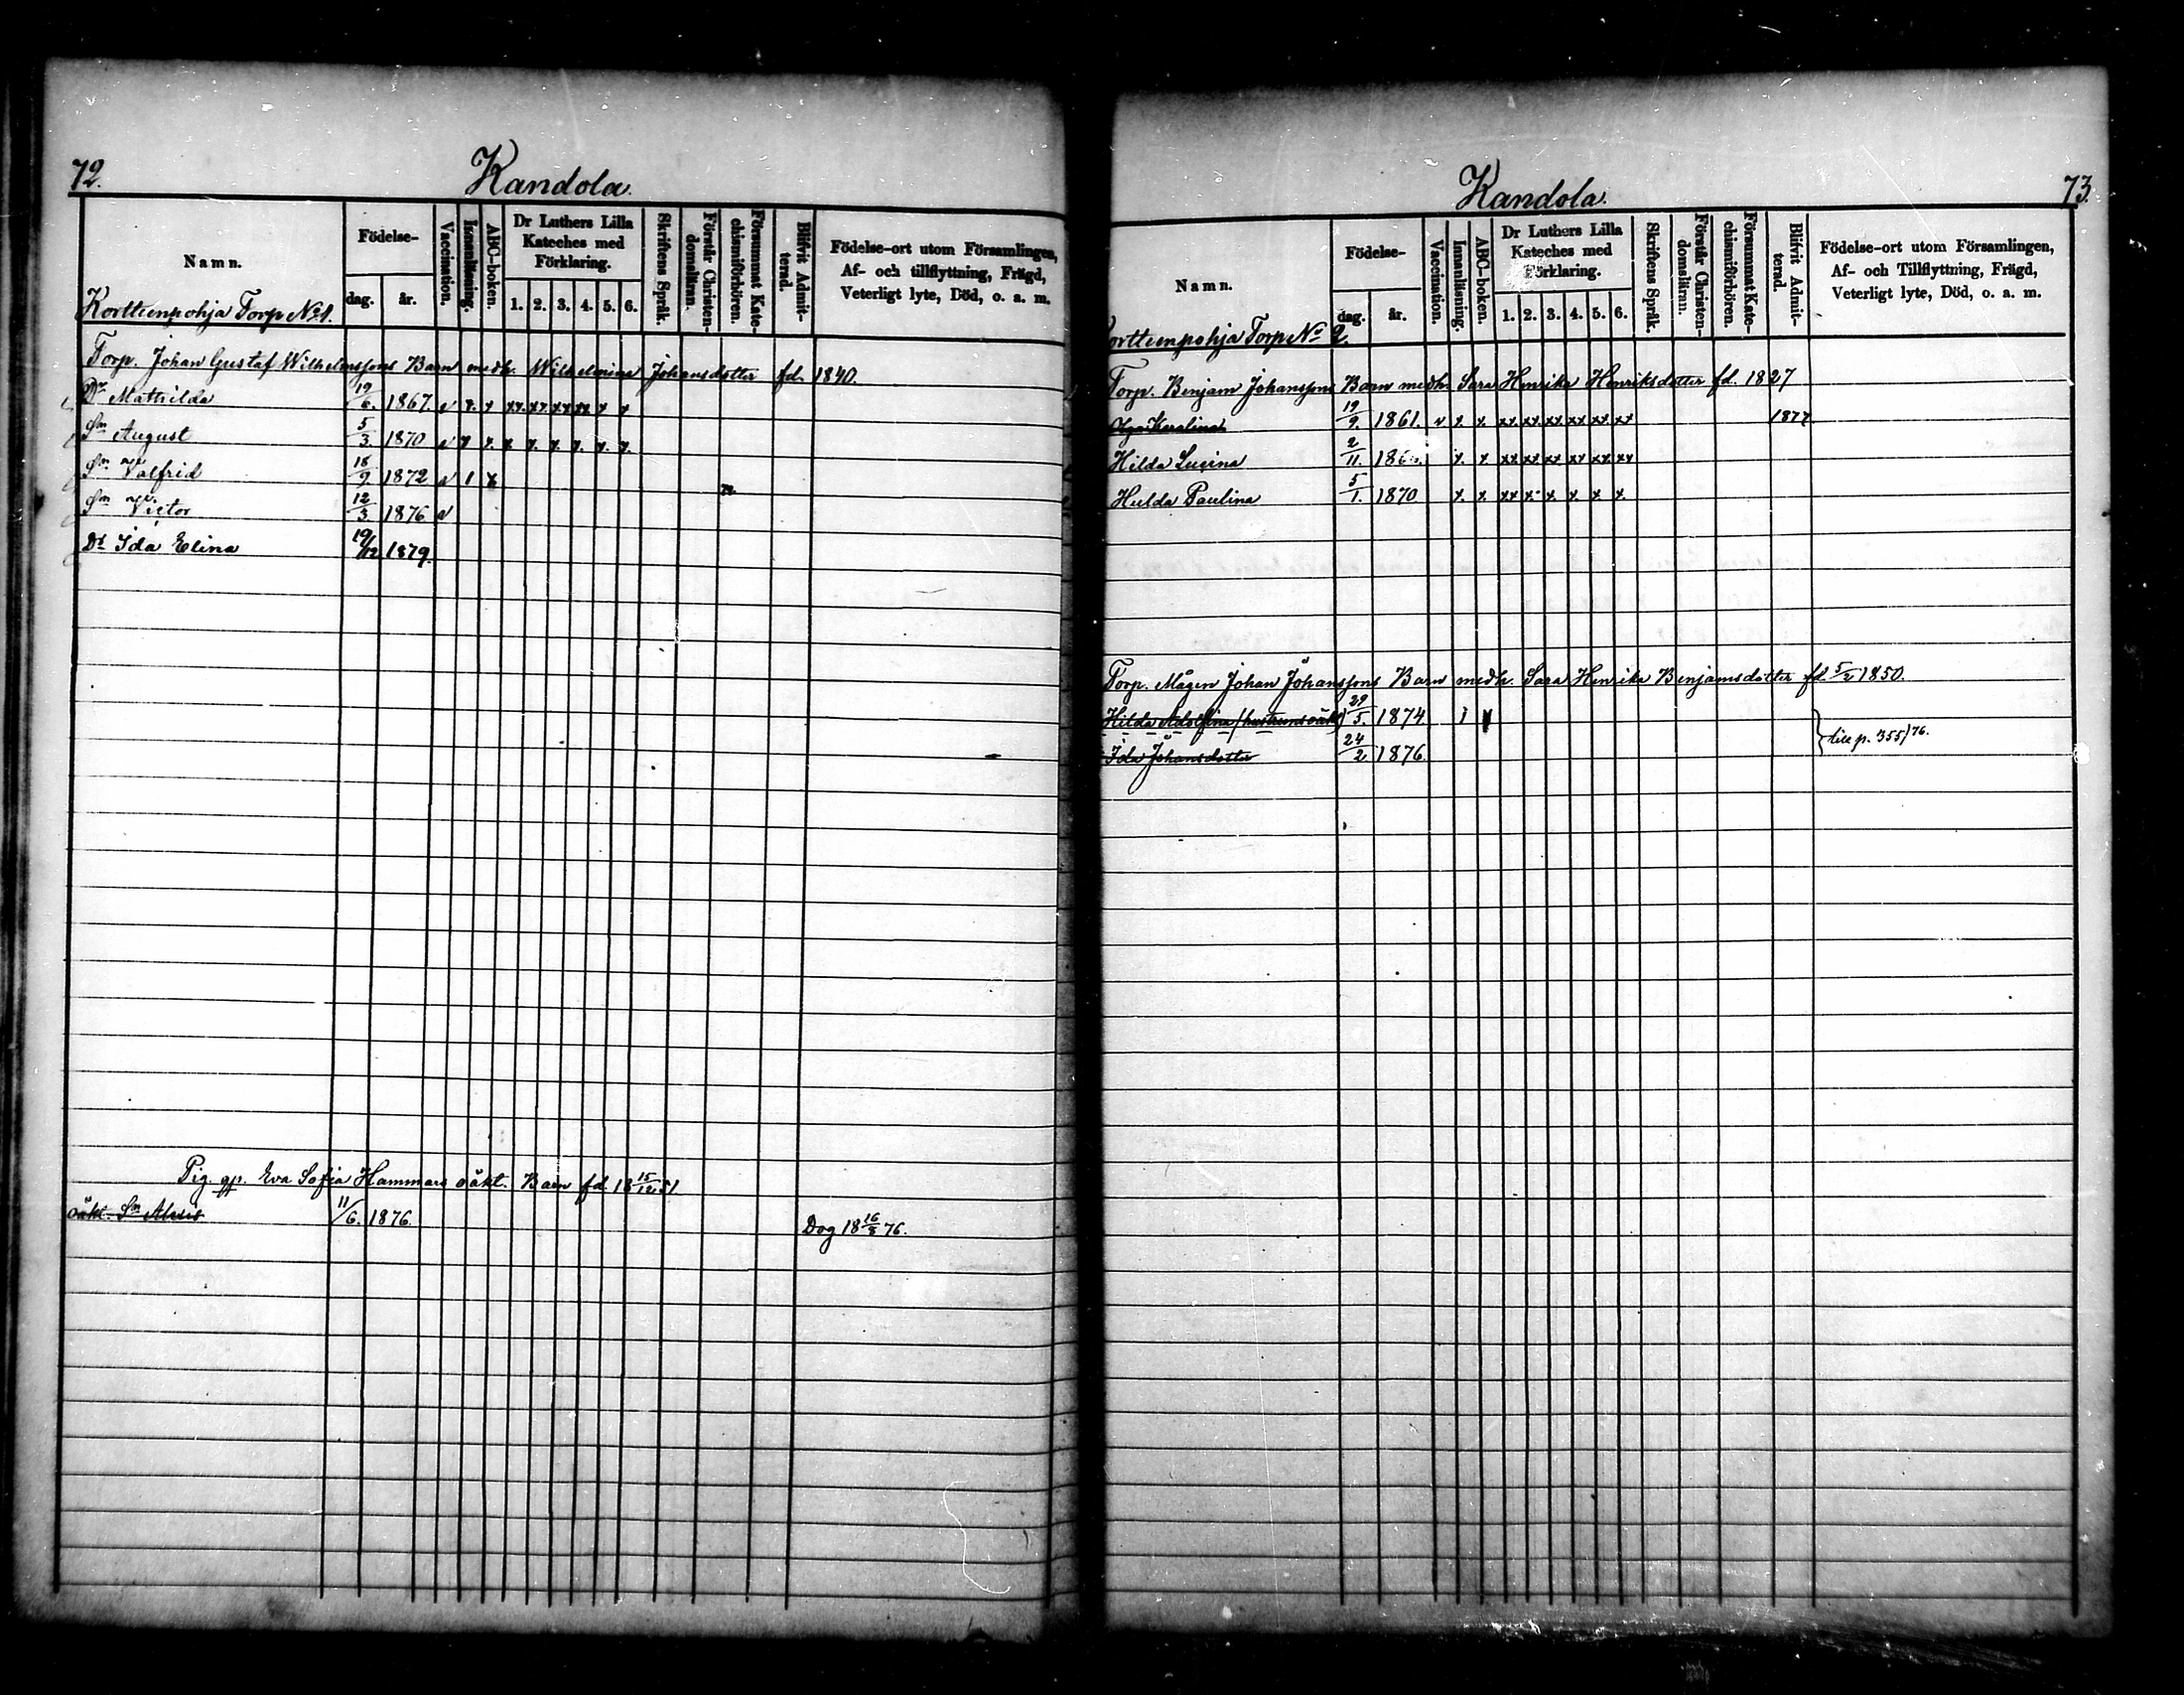 72.
Kandola.
Namn.
Födelse-
dag.
år.
Vaccination.
Innanläsning.
ABC-boken.
Dr Luthers Lilla
Kateches med
Förklaring.
1. 2. 3. 4. 5. 6.
Skriftens Språk.
Förstår Christen-
domsläran.
Försummat Kate-
chismiförhören.
Blifvit Admit-
terad.
Födelse-ort utom Församlingen,
Af- och tillflyttning, Frägd,
Veterligt lyte, Död, o. a. m.
Korttenpohja Torp No 1.
Torp. Johan Gustaf Wilhelmssons Barn medh. Wilhelmina Johansdotter fd. 1840.
Dr Mathilda 19/6. 1867. v x. x xx. xx xx xx x x
Sn August 5/3 1870 v x x. x x. x. x. x. x.
Sn Valfrid 18/9 1872 v 1 x
Sn Victor 12/3. 1876 v
Dr Ida Elina 19/12 1879.
Pig. gp. Eva Sofia Hammars oäkt. Barn fd. 18 15/12 51.
oäkt. Sn Alexis 11/6. 1876. Dog 18 16/8 76.
Kandola.
73.
Namn.
Födelse-
dag.
år.
Vaccination.
Innanläsning.
ABC-boken.
Dr Luthers Lilla
Kateches med
Förklaring.
1. 2. 3. 4. 5. 6.
Skriftens Språk.
Förstår Christen-
domsläran.
Försummat Kate-
chismiförhören.
Blifvit Admit-
terad.
Födelse-ort utom Församlingen,
Af- och Tillflyttning, Frägd,
Veterligt lyte, Död, o. a. m.
orttenpohja Torp No 2.
Torp. Benjam Johanssons Barn medh. Sara Henrika Henriksdotter fd. 1827
Olga Karolina 19/9. 1861. v x. x. xx. xx. xx. xx xx xx 1877
Hilda Lucina 2/11. x. x. xx xx xx xx xx. xx
Hulda Paulina 5/1. 1870 x. x. xx x. x. x. x. x.
Torp. Mågen Johan Johanssons Barn medh. Sara Henrika Benjamsdotter fd 5/2 1850.
Hilda Adolfina (hustruns oäkt) 29/5. 1874 1
till p. 355/76.
Ida Johansdotter 24/2 1876.